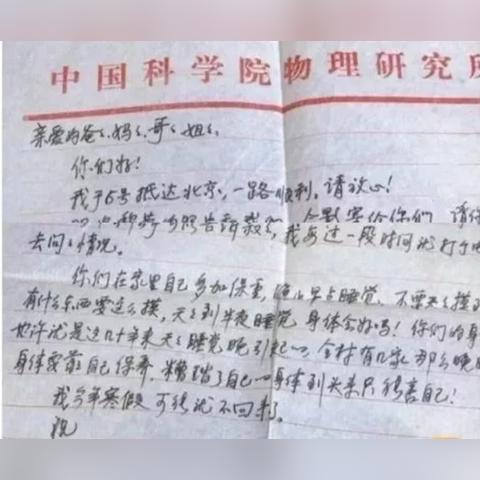 中国科学院物理研究所
亲爱的爸爸、妈妈、哥哥、姐姐、
你们好!
我于6号抵达北京,一路顺利,请放心!
你们 请
去问问情况。 我要过一段时间
你们在家里自己多加保重,早点睡觉,不要天天摸
有什么东西要这么摸,天天到半夜睡觉 身体会好吗!你们的身
也许就是这几十年来天天睡觉晚引起 全村有几家那么晚
身体要靠自己保养,糟蹋了自己 身体到头来只能害自己!
我今年寒假可能就不回来了。
祝